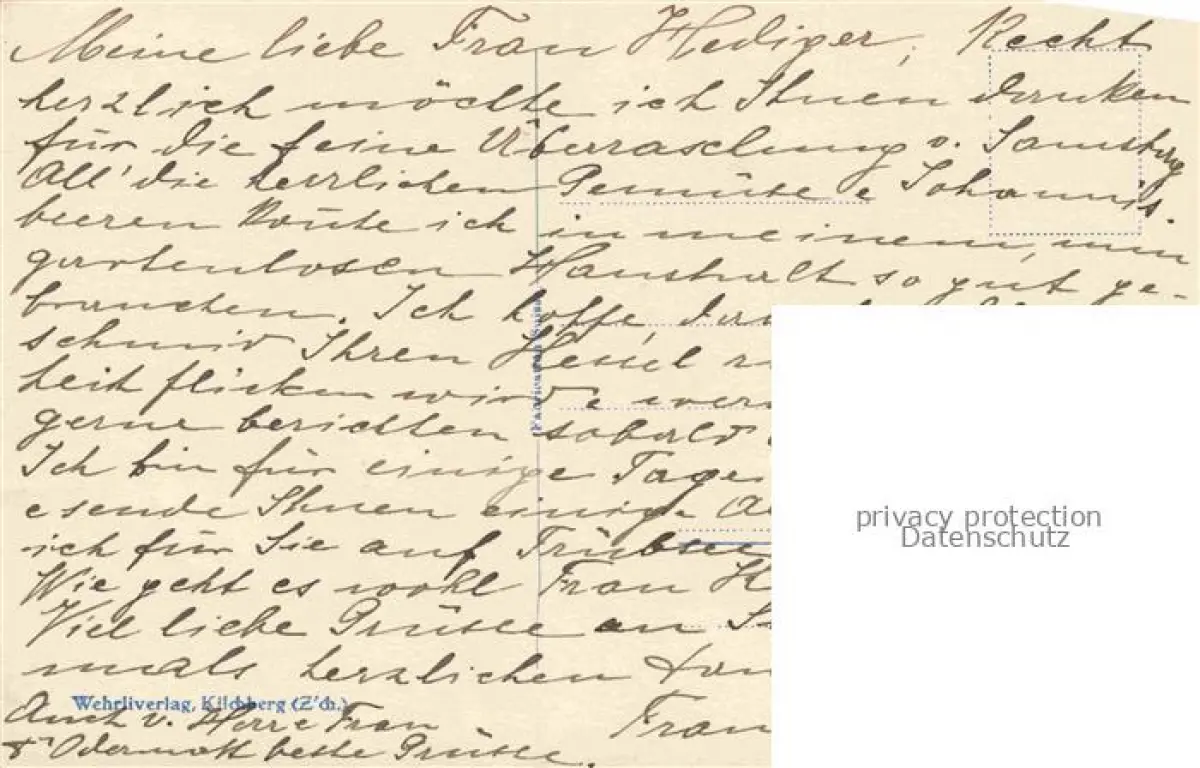 Meine liebe Frau Hediger, Recht
herzlich möchte ich Ihnen danken
für die feine Überraschung v. Samstag
All' die herrlichen Gemüse e Johannis-
beeren konnte ich in meinem, nun
gartenlosen Haushalt so gut ge-
brauchen. Ich hoffe,
schmid Ihren Kessel
heit flicken wird e
gerne berichten sobald
Ich bin für einige Tage
e sende Ihnen einige
ich für Sie auf Trübsee
Wie geht es wohl Frau
Viel liebe Grüsse an
mals herzlichen
Wehrliverlag, Kilchberg (Z'ch.)
Auch v. Herr e Frau Frau
Odermatt beste Grüsse.
privacy protection
Datenschutz